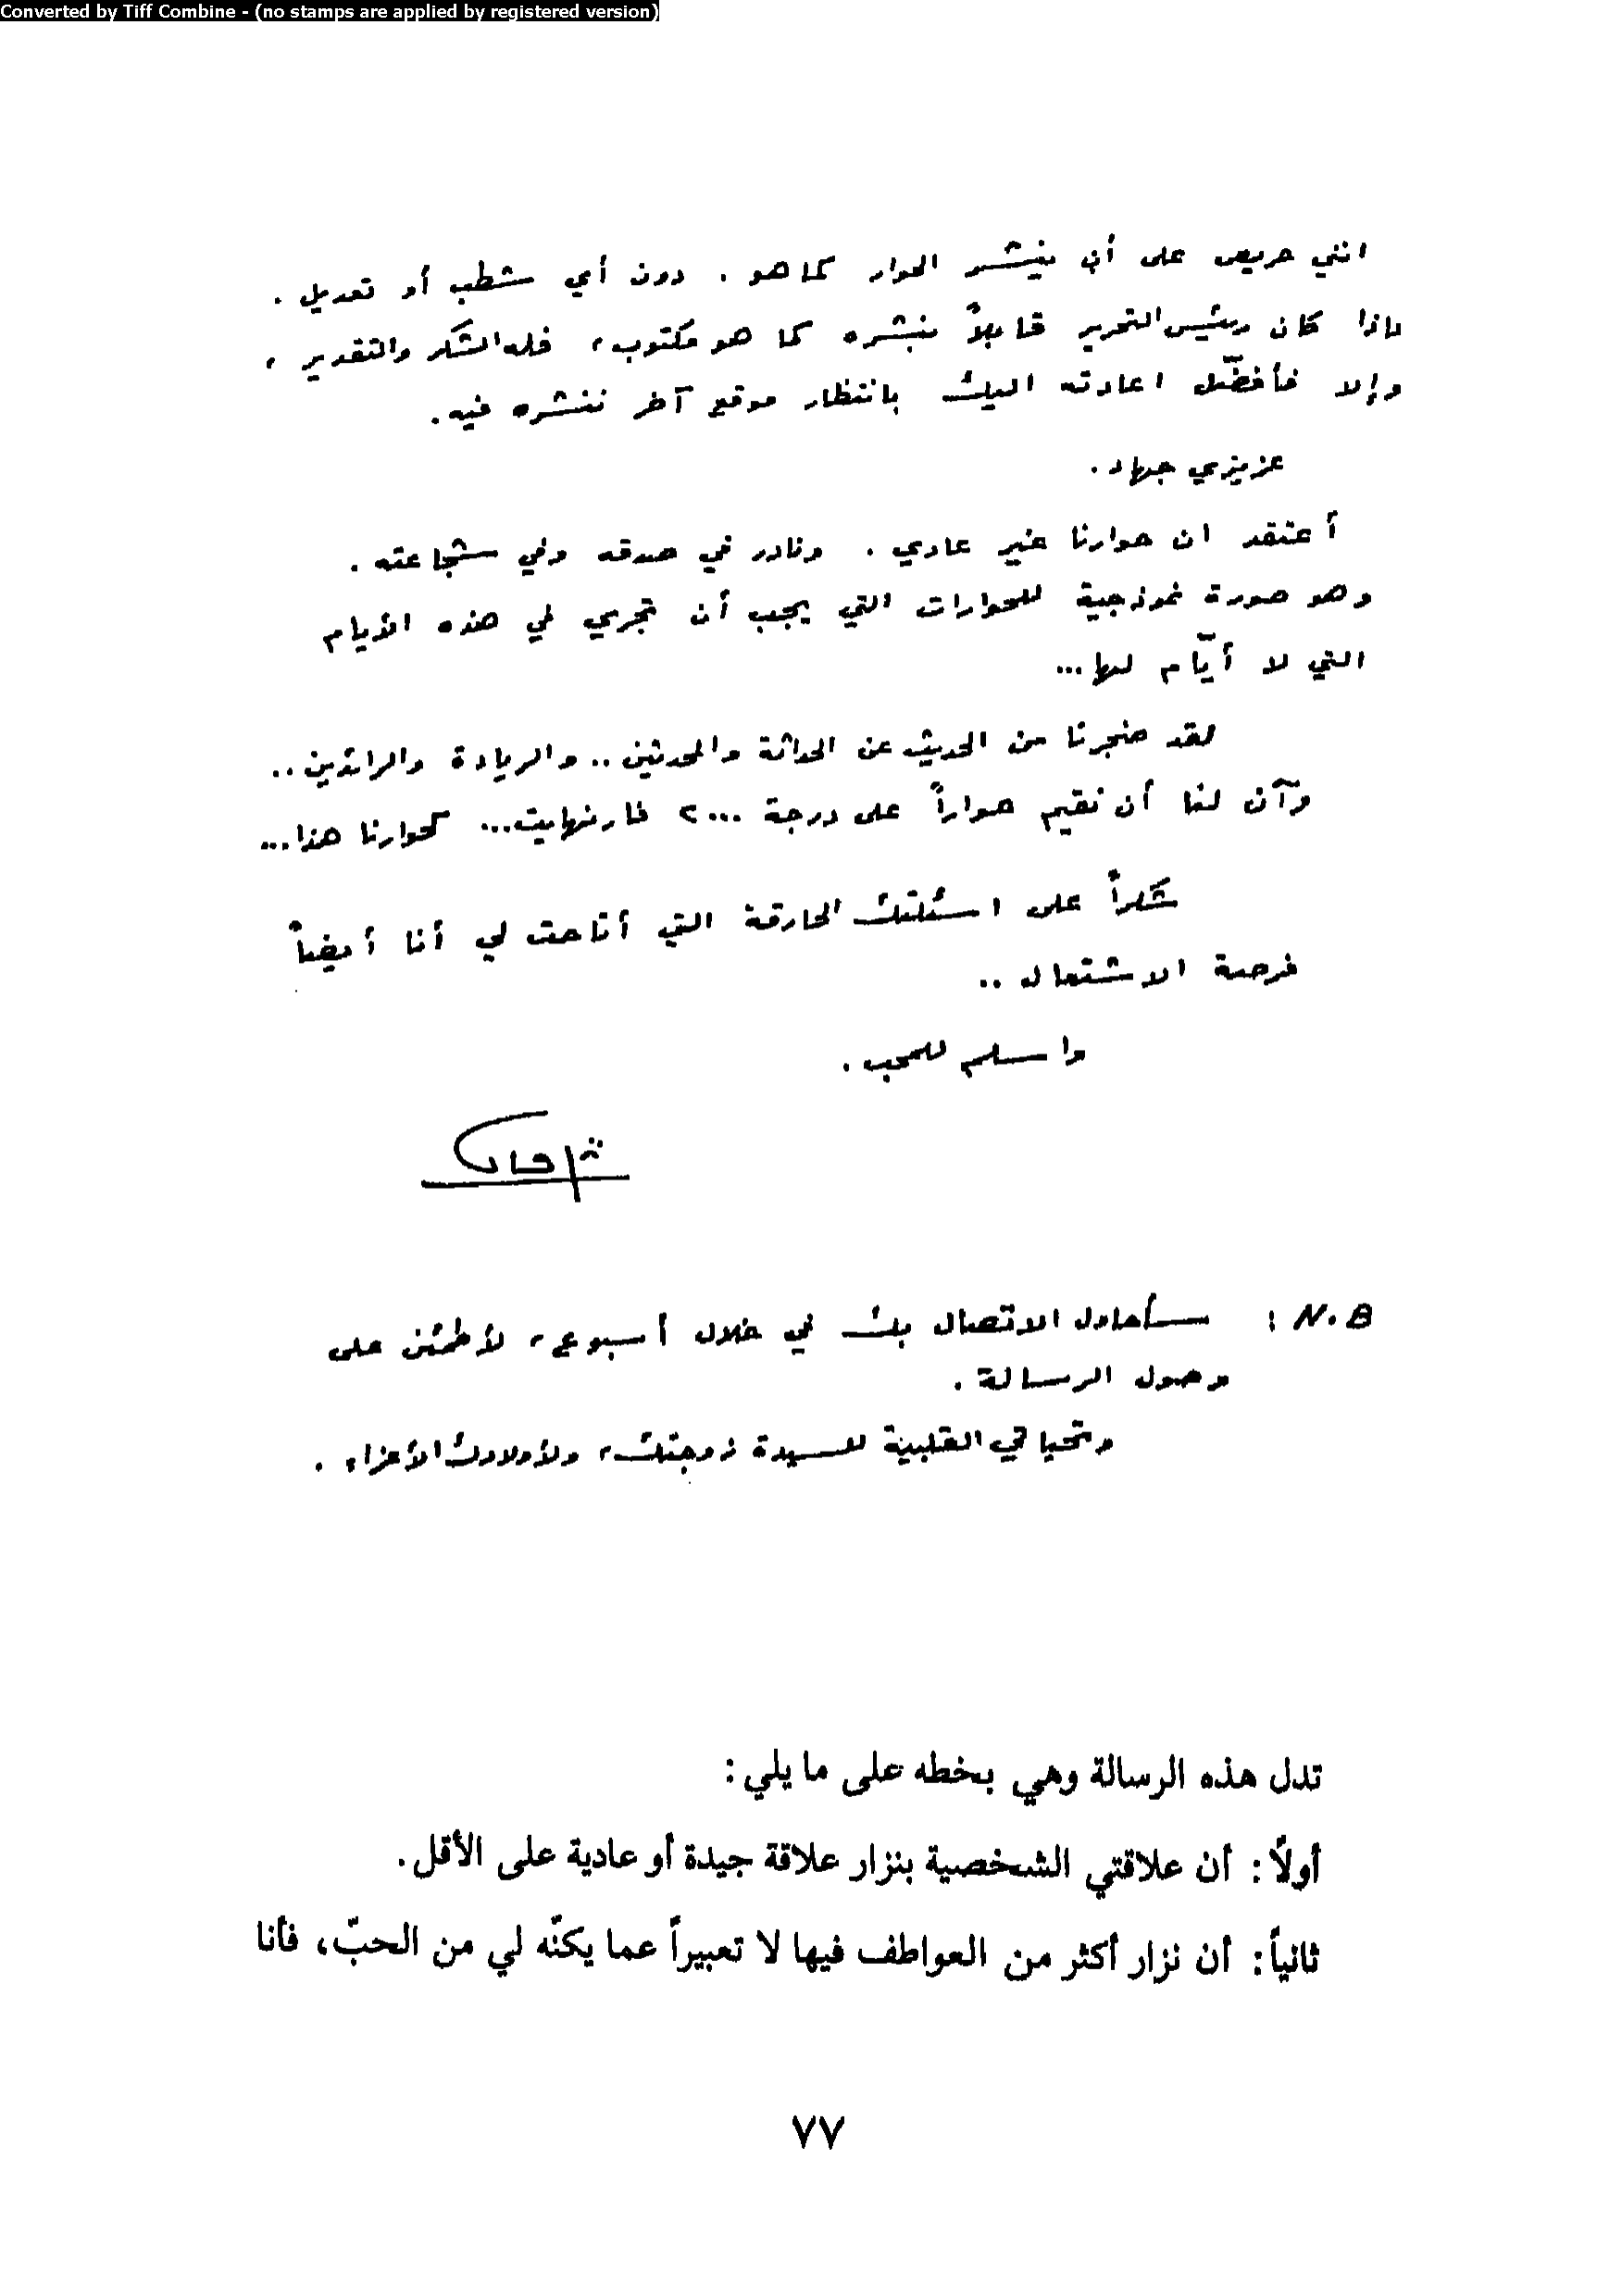 Converted by Tiff Combine - (no stamps are applied by registered version)
انني حريص على أن ينشر الحوار كما هو . دون أي شطب أو تعديل .
فاذا كان رئيس التحرير قابلاً بنشره كما هو مكتوب ، فله الشكر والتقدير ،
وإلا فأفضّل اعادته اليك بانتظار موقع آخر ننشره فيه .
عزيزي جهاد .
أعتقد ان حوارنا غير عادي . ونادر في صدقه وفي شجاعته .
وهو صورة نموذجية للحوارات التي يجب أن تجري في هذه الأيام
التي لا أيّام لها ...
لقد ضجرنا من الحديث عن الحداثة والمحدثين .. والريادة والرائدين ..
وآن لنا أن نقيم حواراً على درجة ٢٠٠٠ فارنهايت ... كحوارنا هذا ...
شكراً على اسئلتك الحارقة التي أتاحت لي أنا أيضاً
فرصة الاشتعال ..
واسلم للمحب .
N.B : سأحاول الاتصال بك في خلال أسبوع ، لأطمئن على
وصول الرسالة .
وتحياتي القلبية للسيدة زوجتك ، ولأولادك الأعزاء .
تدل هذه الرسالة وهي بخطه على ما يلي :
أولاً : أن علاقتي الشخصية بنزار علاقة جيدة أو عادية على الأقل .
ثانياً : أن نزار أكثر من العواطف فيها لا تعبيراً عما يكنّه لي من الحبّ ، فأنا
٧٧